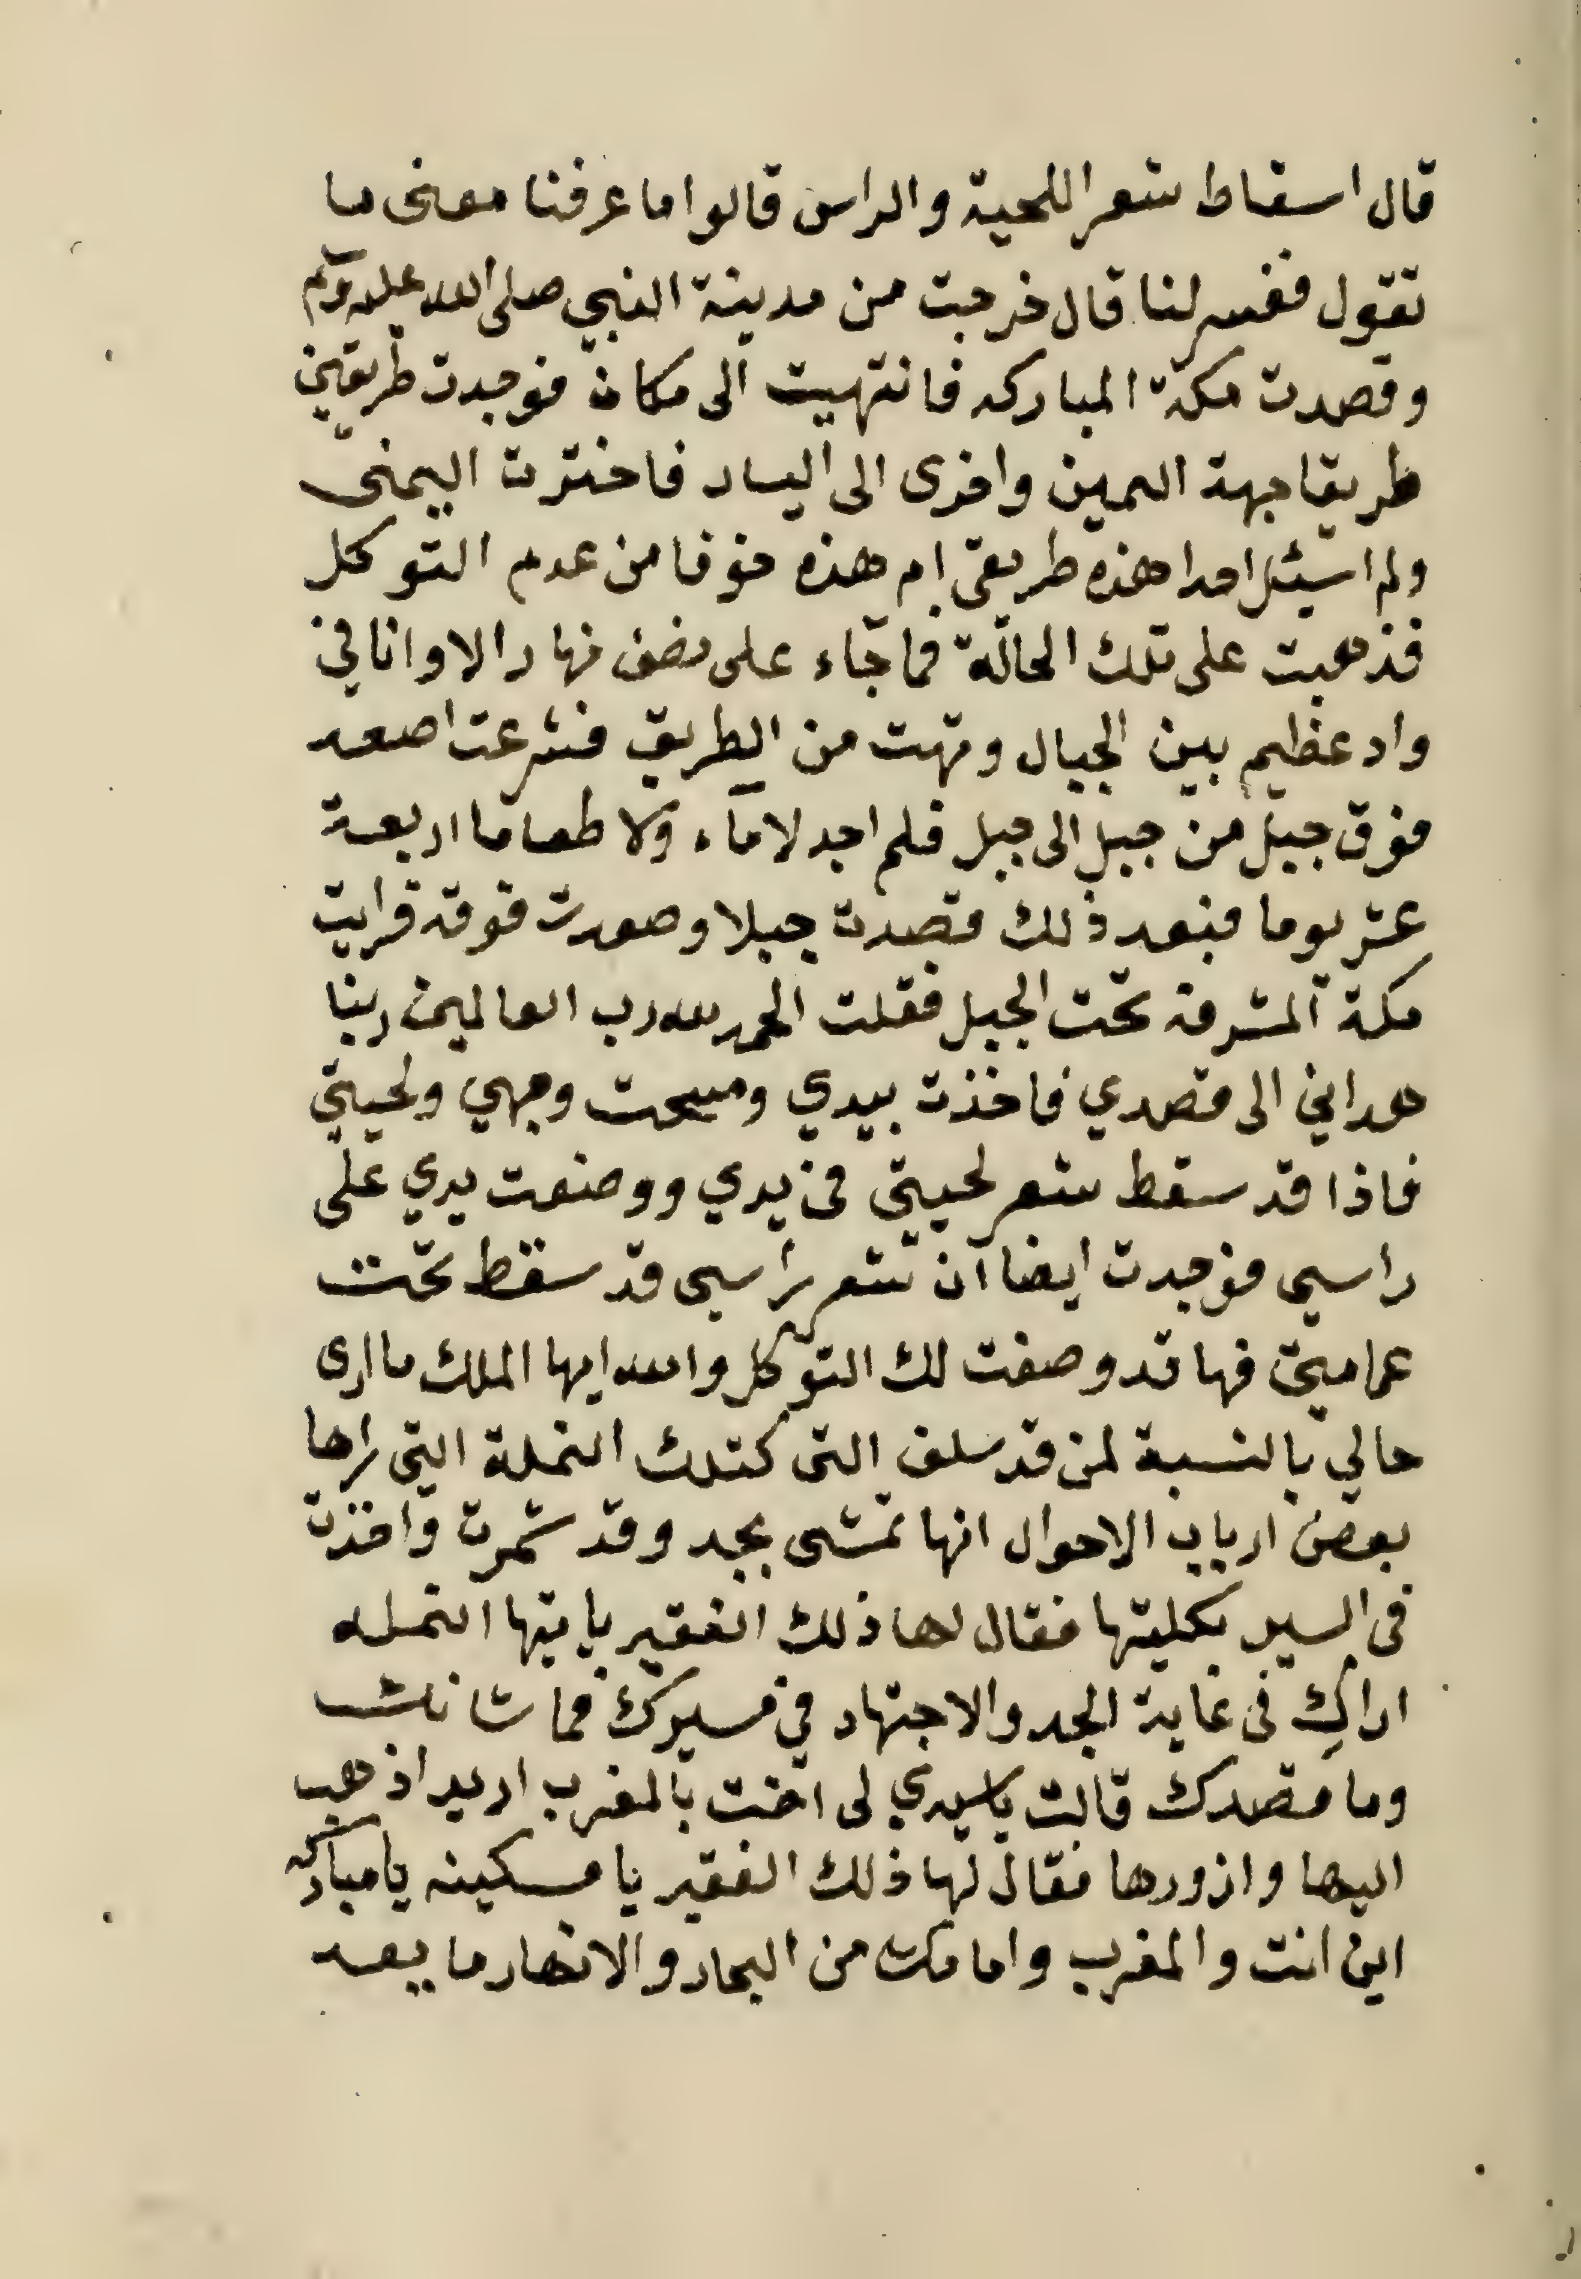 قال اسقاط شعر اللحية والراس قالوا ما عرفنا معنى ما
تقول ففسر لنا قال خرجت من مدينة النبي صلى الله عليه وسلم
وقصدت مكة المباركه فانتهيت الى مكان فوجدت طريقين
طريقا جهة اليمين واخرى الى اليسار فاخترت اليمنى
ولم اسئل احدا هذه طريقي ام هذه خوفا من عدم التوكل
فذهبت على تلك الحالة فما جاء على نصف نهار الا وانا في
واد عظيم بين الجبال وتهت من الطريق فشرعت اصعد
فوق جبل من جبل الى جبل فلم اجد لا ماء ولا طعاما اربعة
عشر يوما فبعد ذلك قصدت جبلا وصعدت فوقه فرايت
مكة المشرفة تحت الجبل فقلت الحمد لله رب العالمين ربنا
هداني الى قصدي فاخذت بيدي ومسحت وجهي ولحيتي
فاذا قد سقط شعر لحيتي في يدي ووضعت يدي على
راسي فوجدت ايضا ان شعر راسي قد سقط تحت
عمامتي فها قد وصفت لك التوكل والله ايها الملك ما ارى
حالي بالنسبة لمن قد سلف التى كتلك النملة التي راها
بعض ارباب الاحوال انها تمشى بجد وقد شمرت واخذت
في السير بكليتها فقال لها ذلك الفقير يايتها النمله
اراك في غاية الجد والاجتهاد في مسيرك فما شانك
وما مقصدك قالت ياسيدي لى اخت بالمغرب اريد اذهب
اليها وازورها فقال لها ذلك الفقير يا مسكينه يا مباركه
اين انت والمغرب وامامك من البحار والانهار ما يبعد